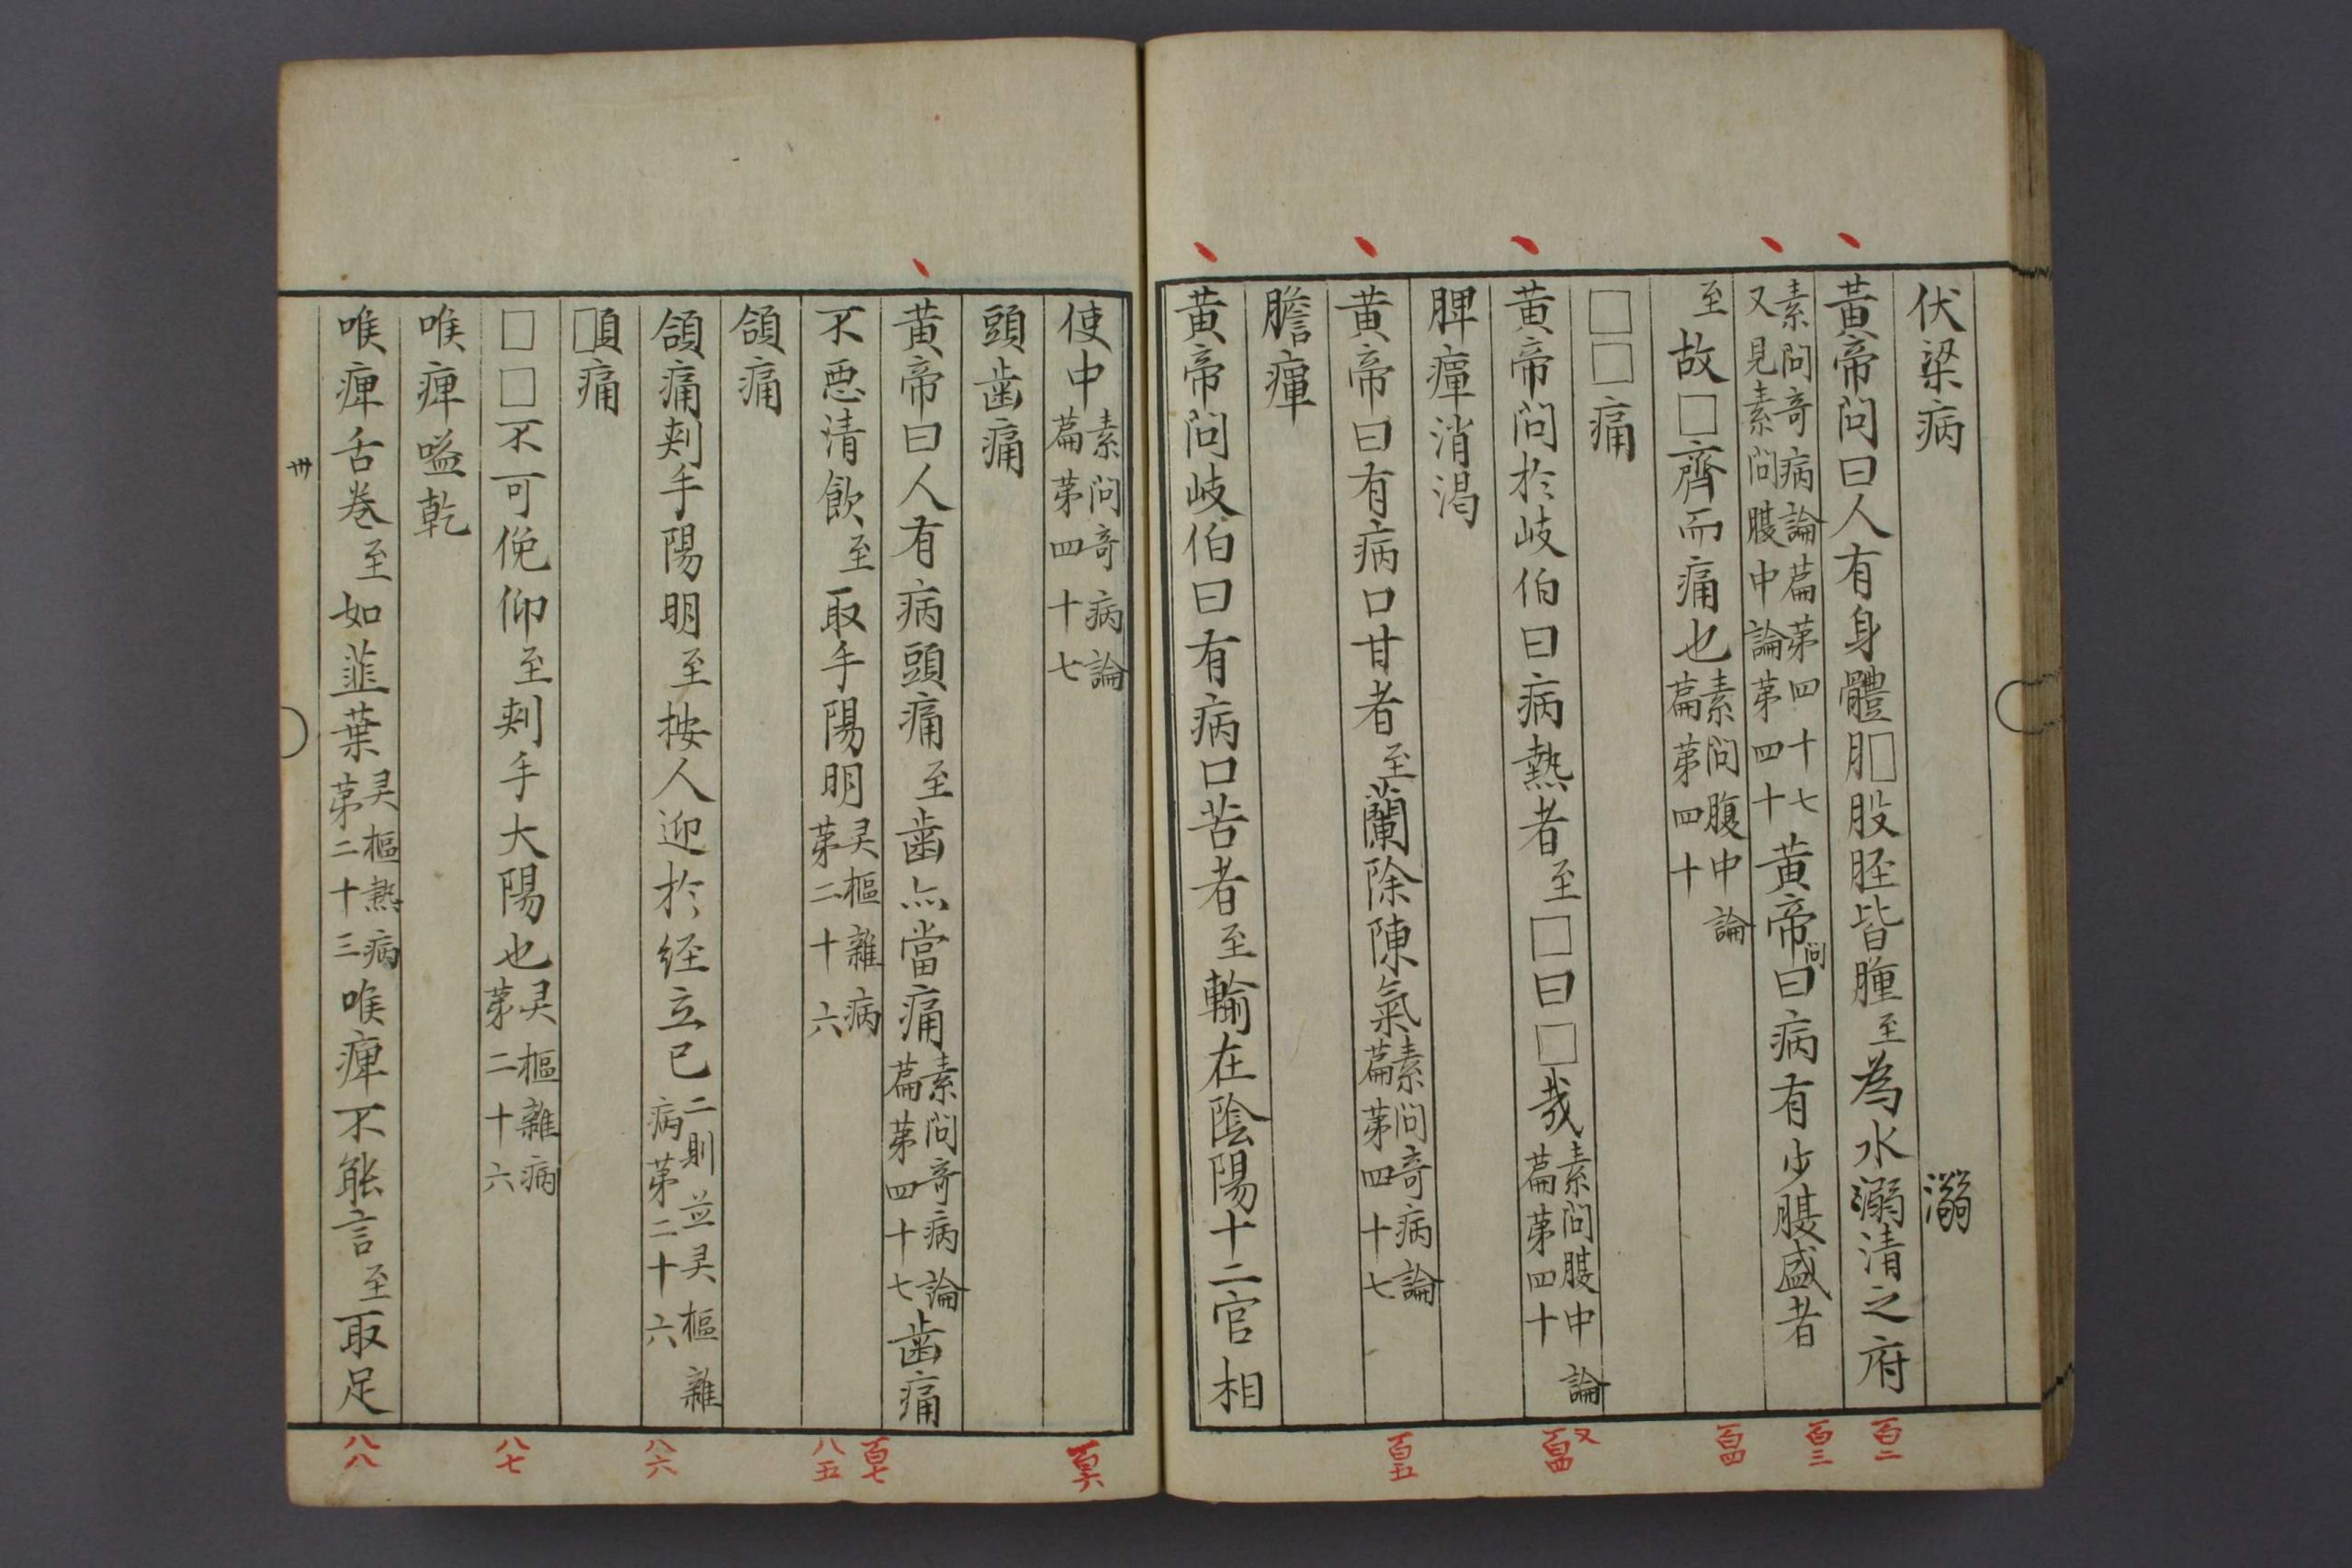 伏梁病　溺
黃帝問曰人有身體⺼□股胫皆腫至為水溺清之府
素問奇病論篇第四十七又見素問腹中論第四十黃帝問曰病有少腹盛者
至故□齊而痛也素問腹中論篇第四十
□□痛
黃帝問於岐伯曰病熱者至□曰□哉素問腹中論篇第四十
脾癉消渴
黃帝曰有病口甘者至蘭除陳氣素問奇病論篇第四十七
膽癉
黃帝問岐伯曰有病口苦者至輸在陰陽十二官相
使中素問奇病論篇第四十七
頭齒痛
黃帝曰人有病頭痛至齒亦當痛素問奇病論篇第四十七齒痛
不惡清飲至取手陽明灵樞雜病第二十六
頷痛
頷痛刺手陽明至按人迎於经立已二則並灵樞雜病第二十六
□頁痛
□□不可俛仰至刺手大陽也灵樞雜病第二十六
喉痺嗌乾
喉痺舌卷至如韮葉灵樞熱病第二十三喉痺不能言至取足
卅
百二
百三
百四
又百四
百五
百六
百七
八五
八六
八七
八八